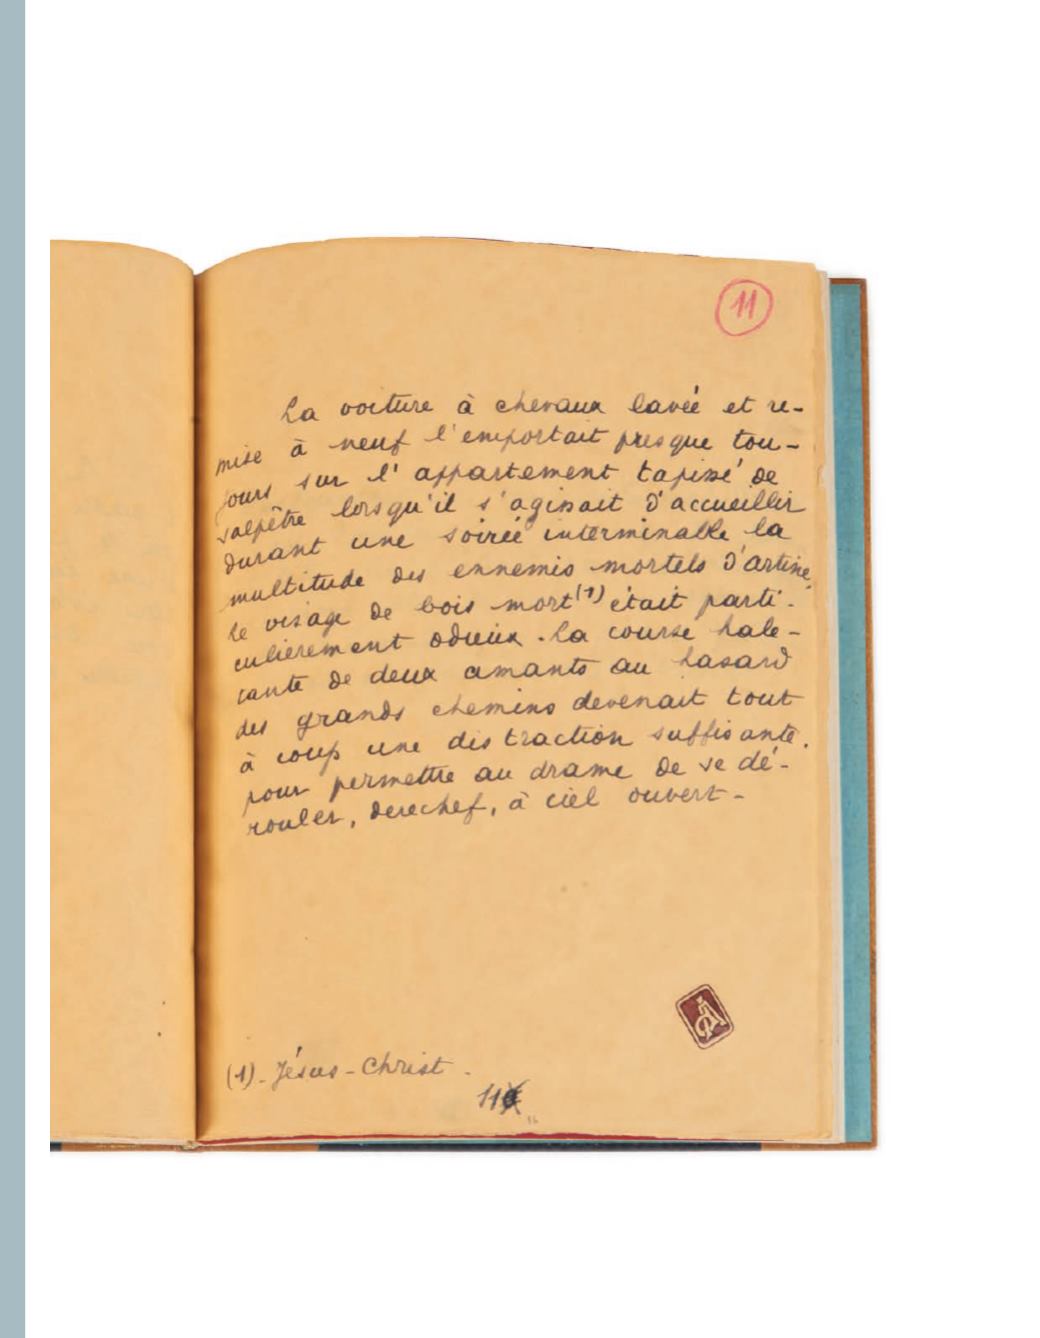 11
La voiture à chevaux lavée et re-
mise à neuf l'emportait presque tou-
jours sur l'appartement tapissé de
salpêtre lorsqu'il s'agissait d'accueillir
durant une soirée interminable la
multitude des ennemis mortels d'artine.
le visage de bois mort (1) était parti-
culièrement odieux. La course hale-
tante de deux amants au hasard
des grands chemins devenait tout
à coup une distraction suffisante.
pour permettre au drame de se dé-
rouler, derechef, à ciel ouvert-
(1). Jésus-Christ.
11